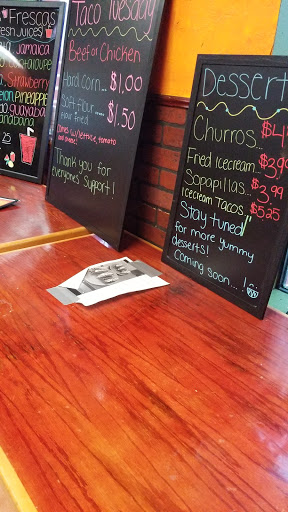 Frescas
Fresh Juices
Jamaica
Strawberry
pineapple
guayaba
25
Taco Tuesday
Beef or Chicken
Hard corn... $1.00
Soft flour.... $1.50
flour fried
Comes w/lettuce, tomato
and cheese!
Thank you for
everyones' Support!
Dessert
Churros...
Fried Icecream $3.99
Sopapillas... 3.99
Icecream Tacos $5.25
Stay tuned
for more yummy
desserts!
Coming soon...!